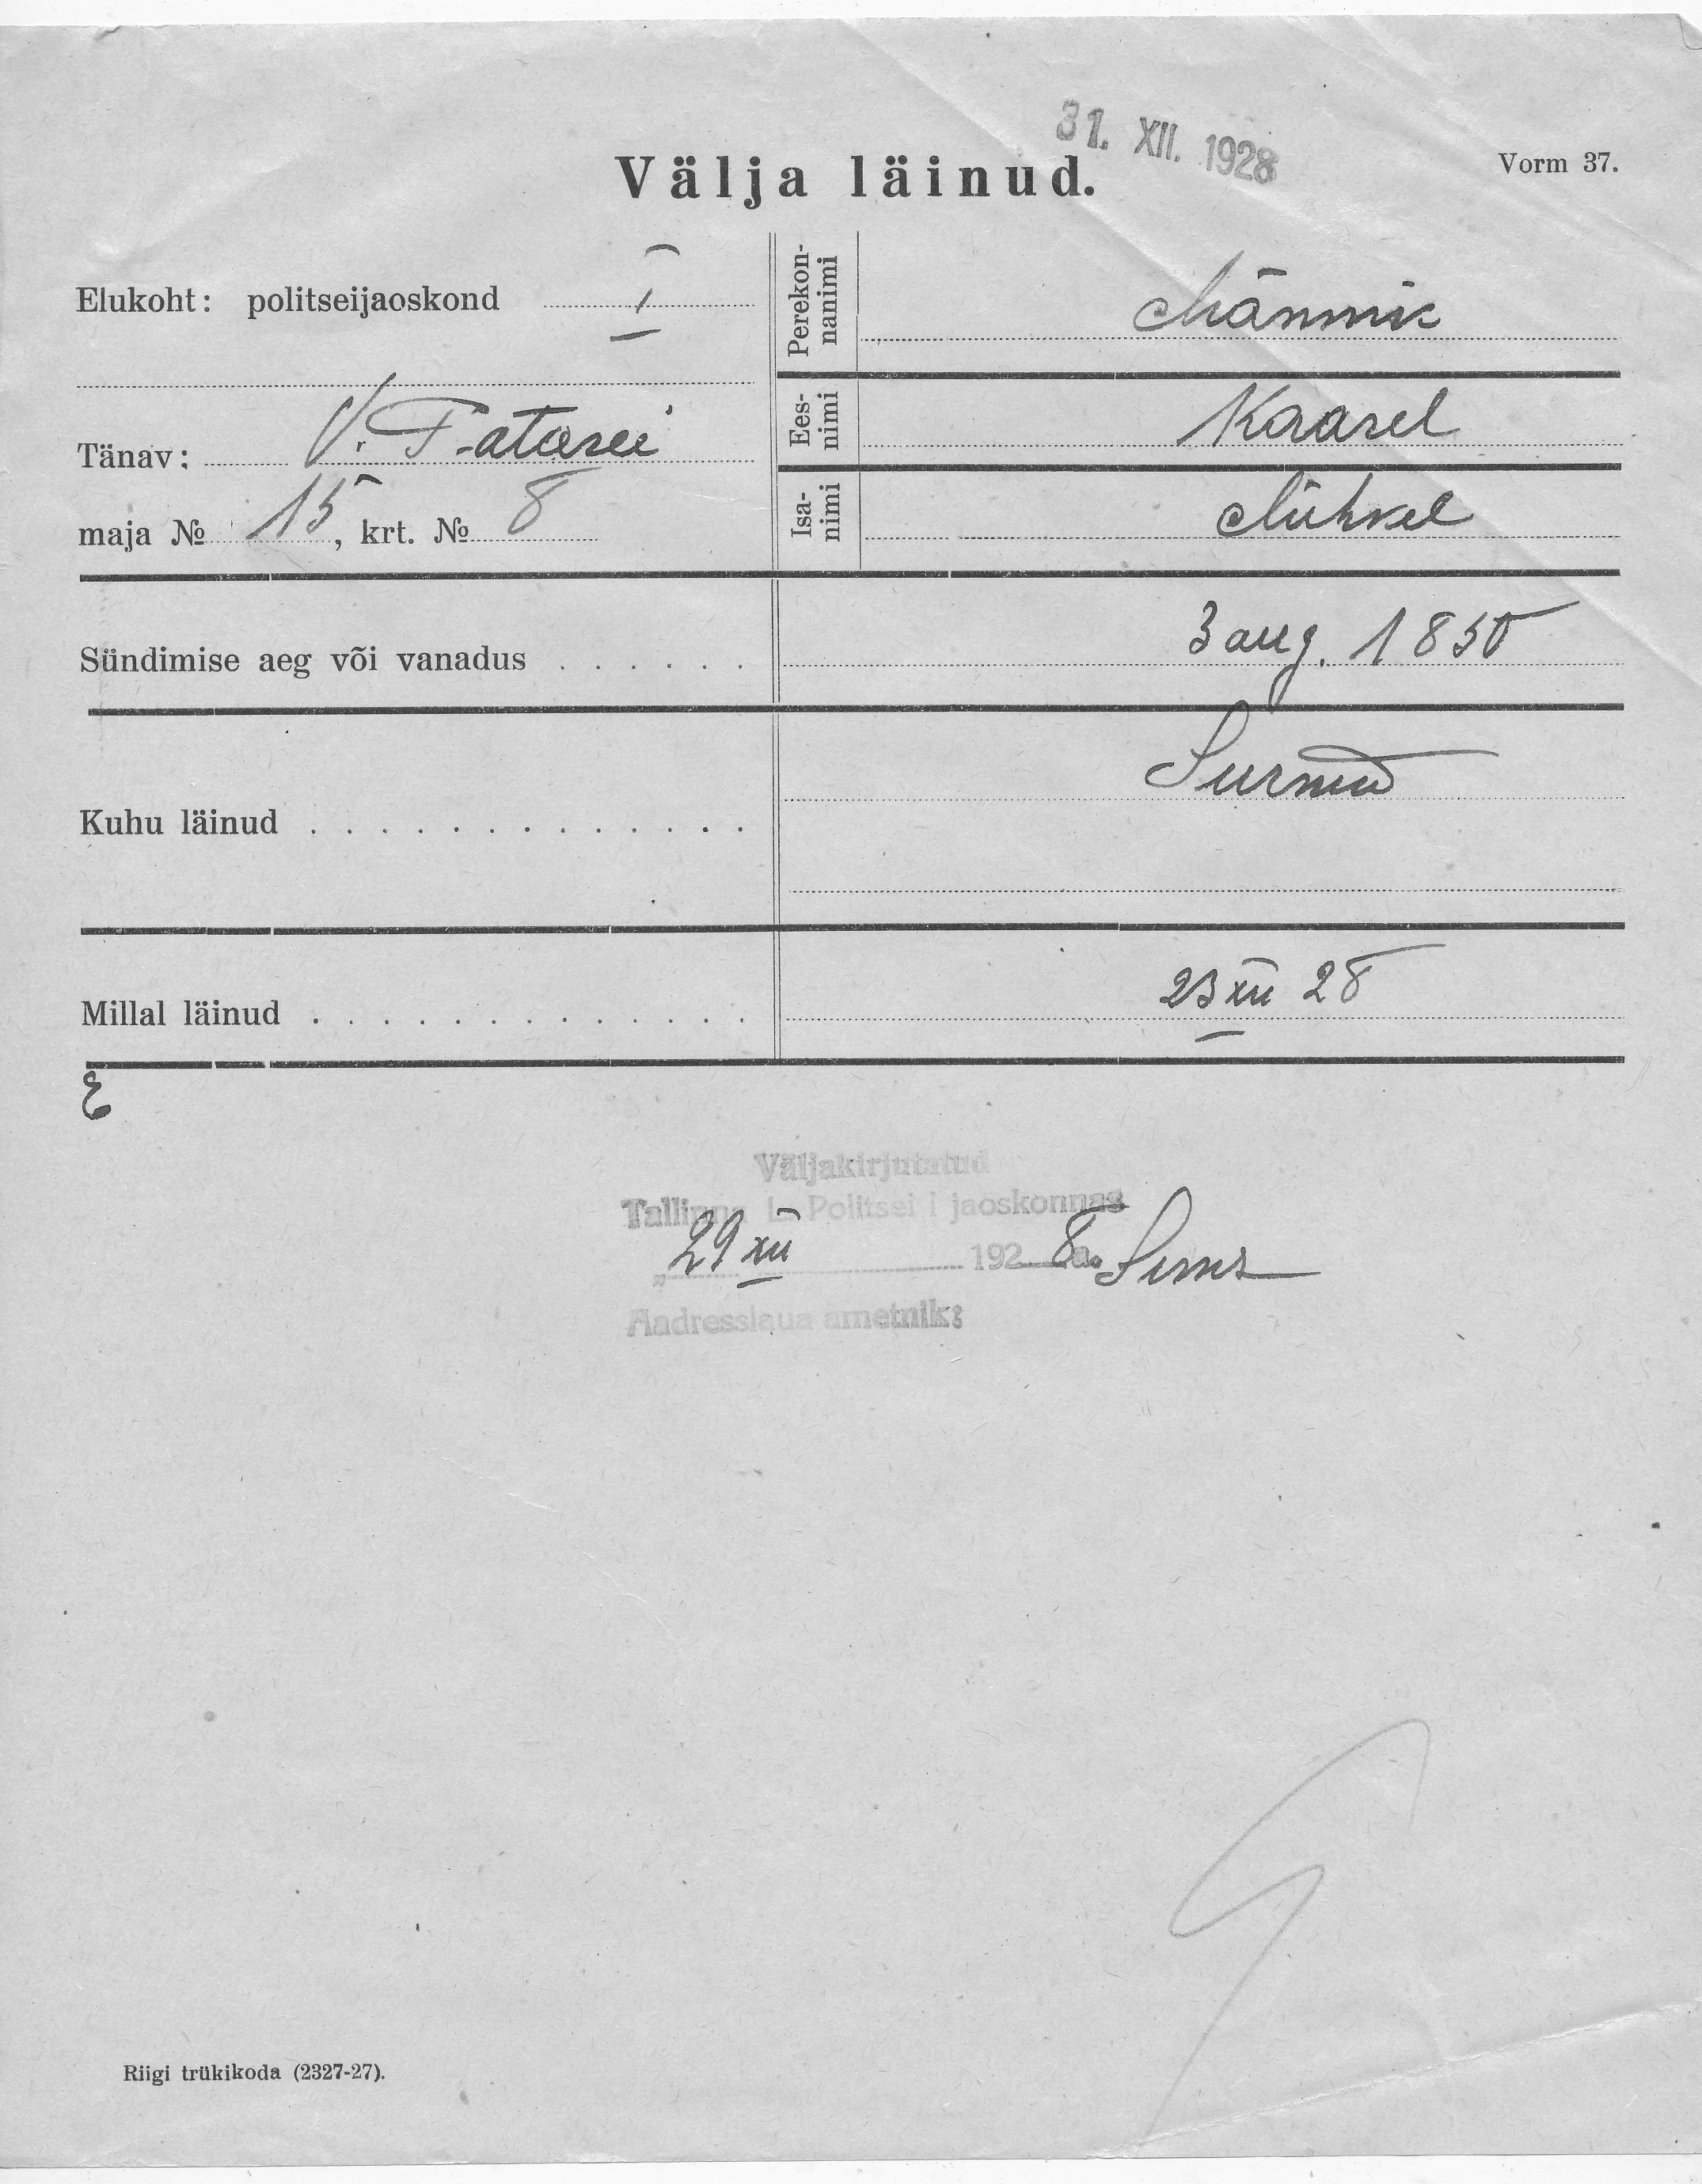 31. XII. 1928
Välja läinud.
Vorm 37.
Elukoht: politseijaoskond I
Tänav: V. Patarei
maja № 15, krt. № 8
Perekon-
nanimi
Männik
Ees-
nimi
Kaarel
Isa-
nimi
Mihkel
Sündimise aeg või vanadus . . . . . . .
3 aug. 1850
Kuhu läinud . . . . . . . . . . . . .
Surnud
Millal läinud . . . . . . . . . . . . .
23 XII 28
Väljakirjutatud
Tallinna L. Politsei I jaoskonnas
29 XII 1928 a.
Aadresslaua ametnik:
Riigi trükikoda (2327-27).